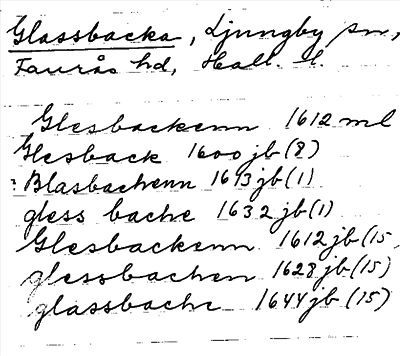 Glassbacka, Ljungby sn,
Faurås hd, Hall. l.
Glesbackenn 1612 ml
Glesback 1600 jb (8)
? Blasbachenn 1613 jb (1)
gless bache 1632 jb (1)
Glesbackenn 1612 jb (15,
glessbachen 1628 jb (15)
glassbache 1644 jb (15)